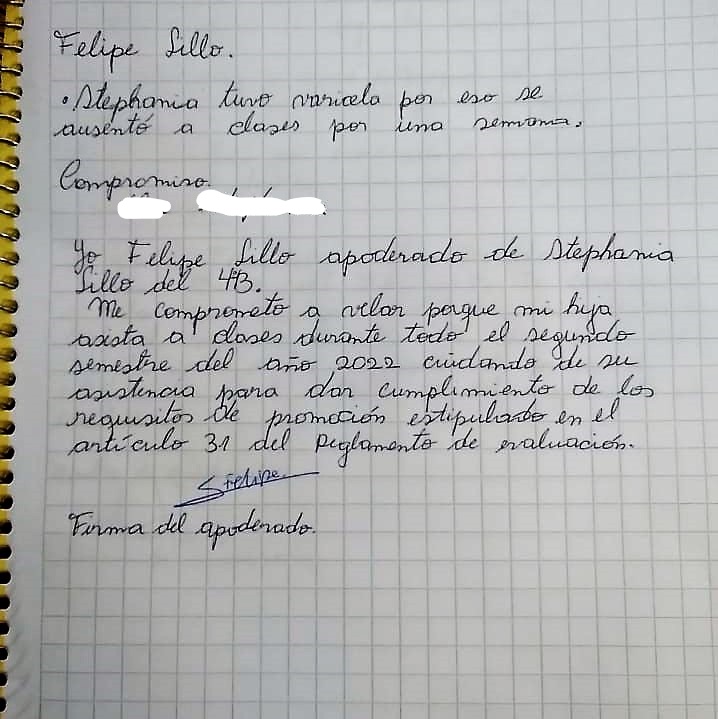 Felipe Sillo.
• Stephania tuvo varicela por eso se
ausentó a clases por una semana.
Compromiso.
Yo Felipe Sillo apoderado de Stephania
Sillo del 4B.
Me comprometo a velar porque mi hija
asista a clases durante todo el segundo
semestre del año 2022 cuidando de su
asistencia para dar cumplimiento de los
requisitos de promoción estipulado en el
artículo 31 del Reglamento de evaluación.
SFelipe
Firma del apoderado.